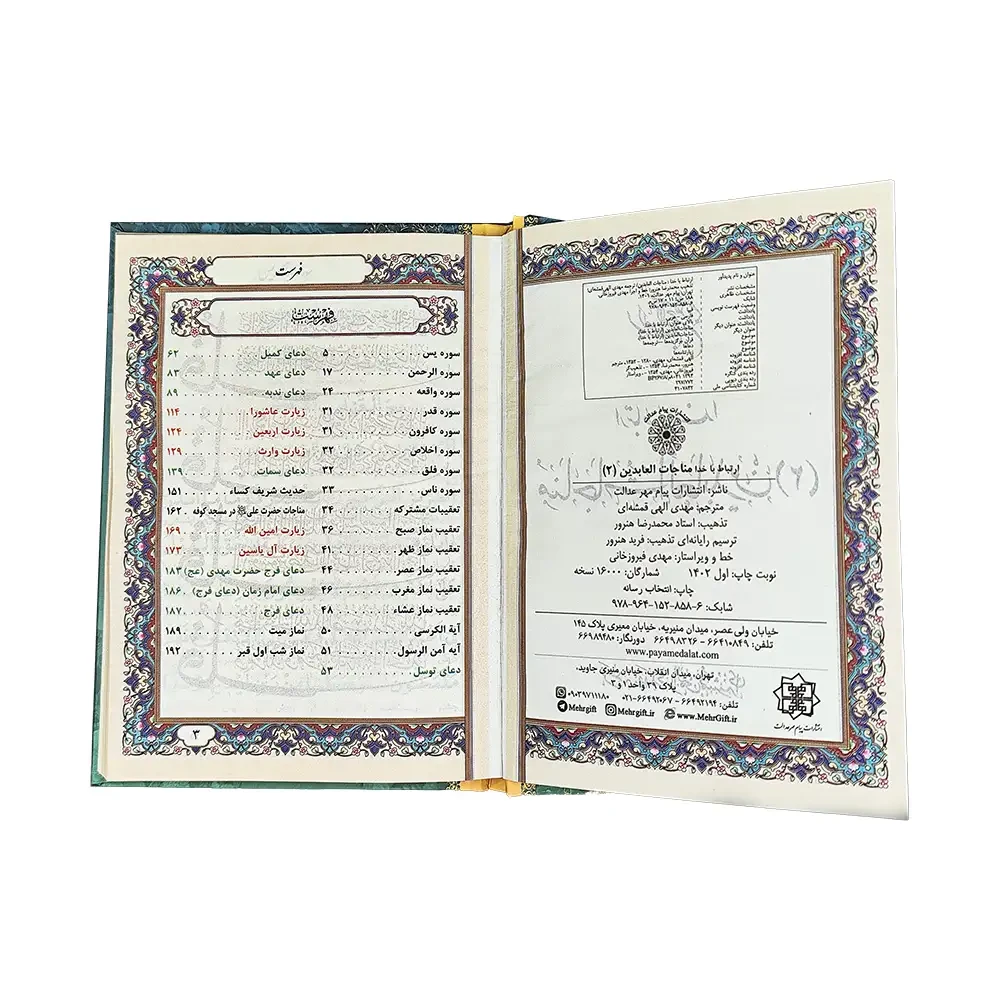 عنوان و نام پدیدآور : ارتباط با خدا : مناجات العابدین/ ترجمه مهدی الهی قمشه‌ای؛
مشخصات نشر
مشخصات ظاهری
شابک
وضعیت فهرست نویسی : فیپا
یادداشت
یادداشت
عنوان دیگر
موضوع
موضوع
موضوع
شناسه افزوده
شناسه افزوده
شناسه افزوده
رده بندی کنگره
رده بندی دیویی
شماره کتابشناسی ملی
انتشارات پیام عدالت
ارتباط با خدا مناجات العابدین (۲)
ناشر: انتشارات پیام مهر عدالت
مترجم: مهدی الهی قمشه‌ای
تذهیب: استاد محمدرضا هنرور
ترسیم رایانه‌ای تذهیب: فرید هنرور
خط و ویراستار: مهدی فیروزخانی
نوبت چاپ: اول ۱۴۰۲ شمارگان: ۱۶۰۰۰ نسخه
چاپ: انتخاب رسانه
شابک: ۶-۸۵۸-۱۵۲-۹۶۴-۹۷۸
خیابان ولی عصر، میدان منیریه، خیابان معیری پلاک ۱۴۵
تلفن: ۶۶۴۱۰۸۴۹ - ۶۶۴۹۸۳۲۶ دورنگار: ۶۶۹۸۹۴۸۰
www.payamedalat.com
تهران، میدان انقلاب، خیابان منیری جاوید،
پلاک ۳۹ واحد ۱ و ۳
تلفن: ۶۶۴۹۲۱۹۴ - ۰۲۱-۶۶۴۹۲۰۶۷ ۰۹۰۳۹۷۱۱۱۸۰
www.MehrGift.ir Mehrgift.ir Mehrgift
انتشارات پیام مهر عدالت
فهرست
فهرست
سوره یس ۵
سوره الرحمن ۱۷
سوره واقعه ۲۴
سوره قدر ۳۱
سوره کافرون ۳۱
سوره اخلاص ۳۲
سوره فلق ۳۲
سوره ناس ۳۳
تعقیبات مشترکه ۳۴
تعقیب نماز صبح ۳۶
تعقیب نماز ظهر ۴۱
تعقیب نماز عصر ۴۴
تعقیب نماز مغرب ۴۶
تعقیب نماز عشاء ۴۸
آیة الکرسی ۵۰
آیه آمن الرسول ۵۱
دعای توسل ۵۳
دعای کمیل ۶۲
دعای عهد ۸۳
دعای ندبه ۸۹
زیارت عاشورا ۱۱۴
زیارت اربعین ۱۲۴
زیارت وارث ۱۲۹
دعای سمات ۱۳۹
حدیث شریف کساء ۱۵۱
مناجات حضرت علی در مسجد کوفه ۱۶۲
زیارت امین الله ۱۶۹
زیارت آل یاسین ۱۷۳
دعای فرج حضرت مهدی (عج) ۱۸۳
دعای امام زمان (دعای فرج) ۱۸۶
دعای فرج ۱۸۷
نماز میت ۱۸۹
نماز شب اول قبر ۱۹۲
۳